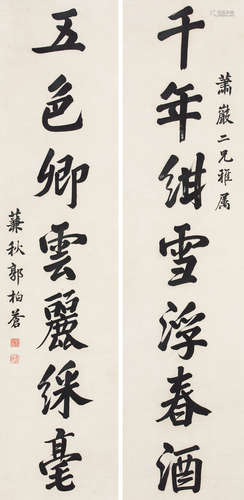 蕭巖二兄雅属
千年紺雪浮春酒
五色卿雲麗綵毫
蒹秋郭柏蒼